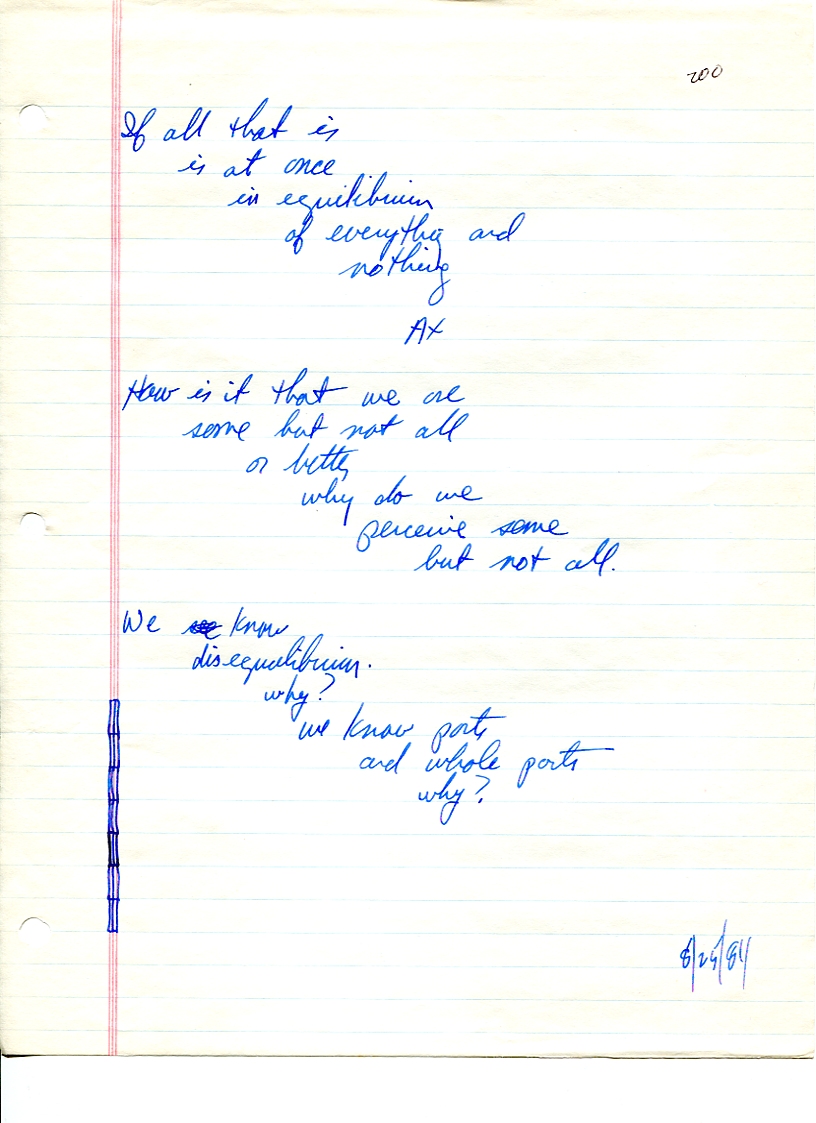 200
If all that is
is at once
in equilibrium
of everythig and
nothing
Ax
How is it that we are
some but not all
or better,
why do we
perceive some
but not all.
We know
disequalibrium.
why?
we know parts
and whole parts
why?
8/25/81